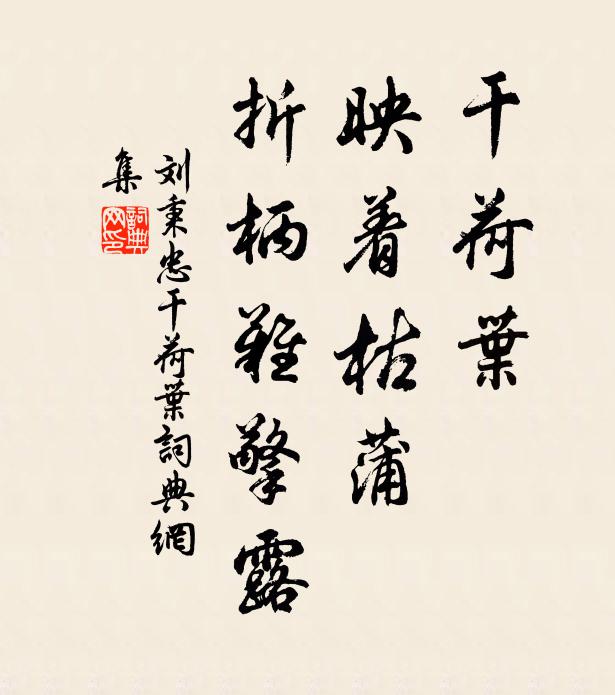 干荷葉
映着枯蒲
折柄難擎露
刘秉忠干荷葉詞典網
集
詞典網印